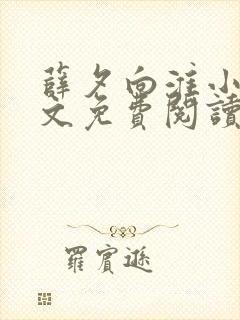 薛夕向淮小
文免費閱讀
羅賓遜